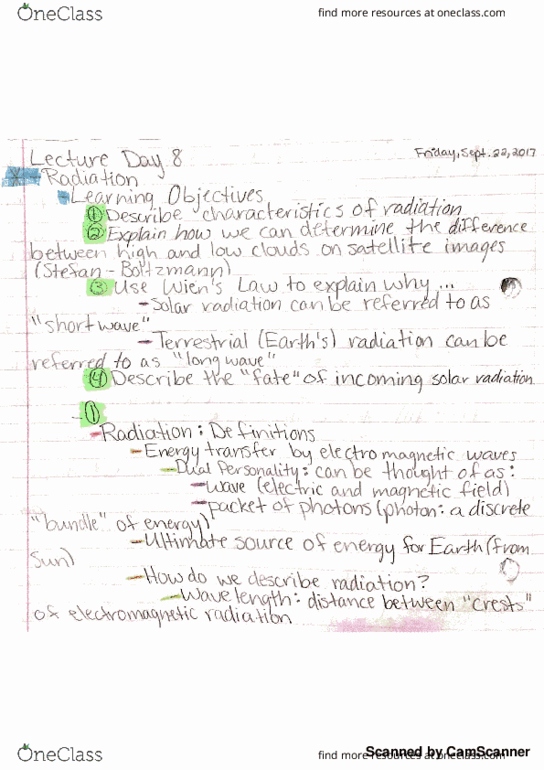 OneClass
find more resources at oneclass.com
Lecture Day 8
Friday, Sept. 22, 2017
* - Radiation
- Learning Objectives
① Describe characteristics of radiation
② Explain how we can determine the difference
between high and low clouds on satellite images
(Stefan - Boltzmann)
③ Use Wien's Law to explain why ...
- Solar radiation can be referred to as
"short wave"
- Terrestrial (Earth's) radiation can be
referred to as "long wave"
④ Describe the "fate" of incoming solar radiation
- ①
- Radiation: Definitions
- Energy transfer by electromagnetic waves
- Dual Personality: can be thought of as:
- Wave (electric and magnetic field)
- packet of photons (photon: a discrete
"bundle" of energy)
- Ultimate source of energy for Earth (from
Sun)
- How do we describe radiation?
- Wavelength: distance between "crests"
of electromagnetic radiation
OneClass
find more resources at oneclass.com
Scanned by CamScanner